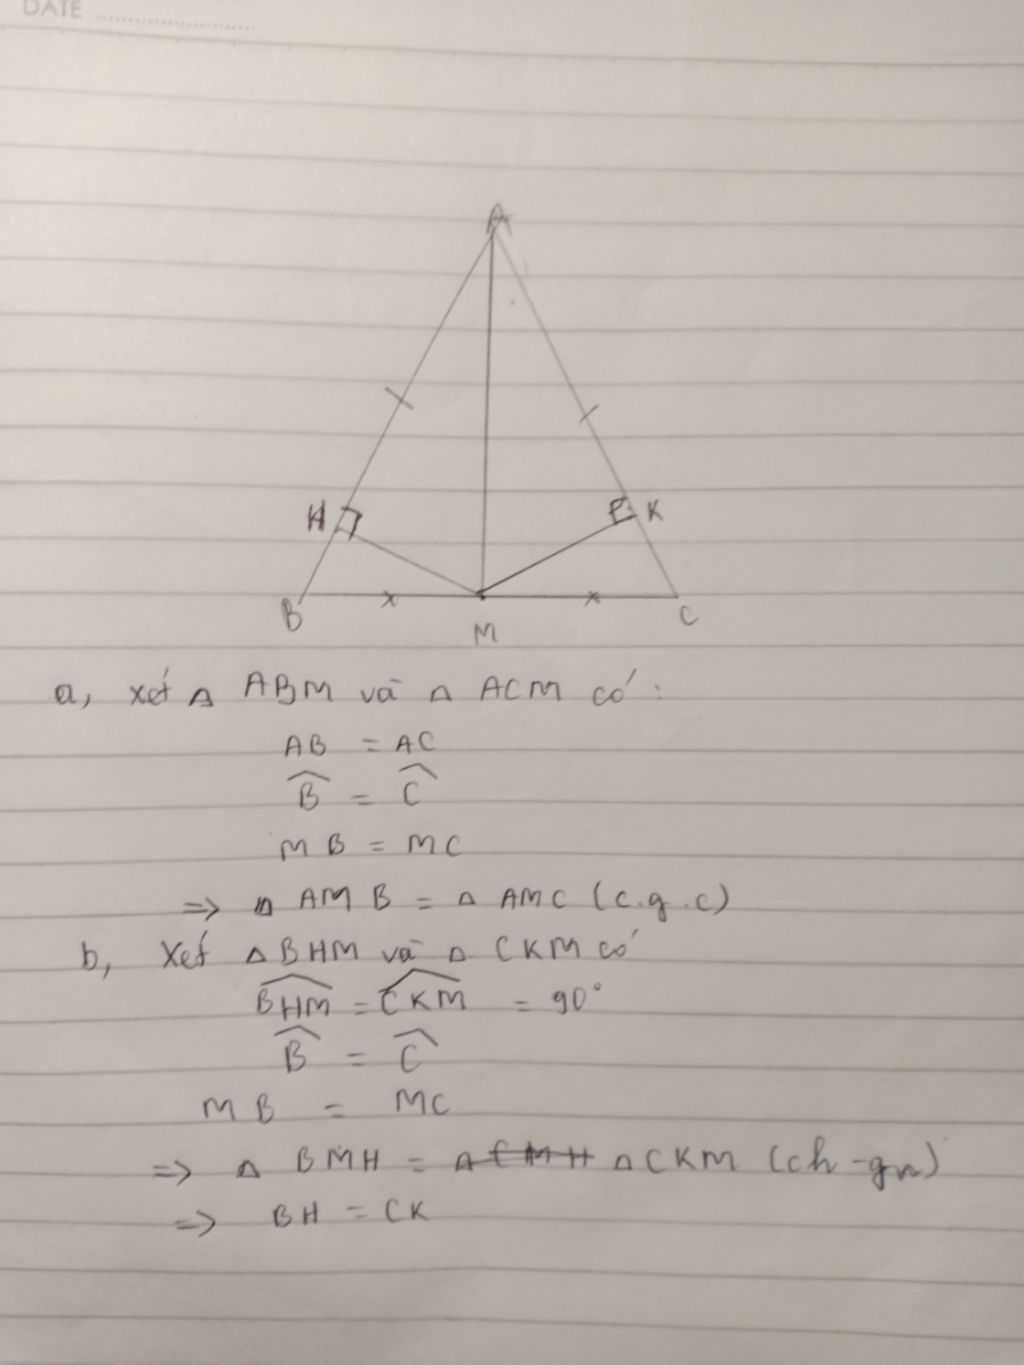 DATE
A
H
K
B
M
C
a, xét Δ ABM và Δ ACM có :
AB = AC
B̂ = Ĉ
MB = MC
=> Δ AMB = Δ AMC (c.g.c)
b, Xét Δ BHM và Δ CKM có
B͡HM = C͡KM = 90°
B̂ = Ĉ
MB = MC
=> Δ BMH = Δ CMH Δ CKM (ch-gn)
=> BH = CK